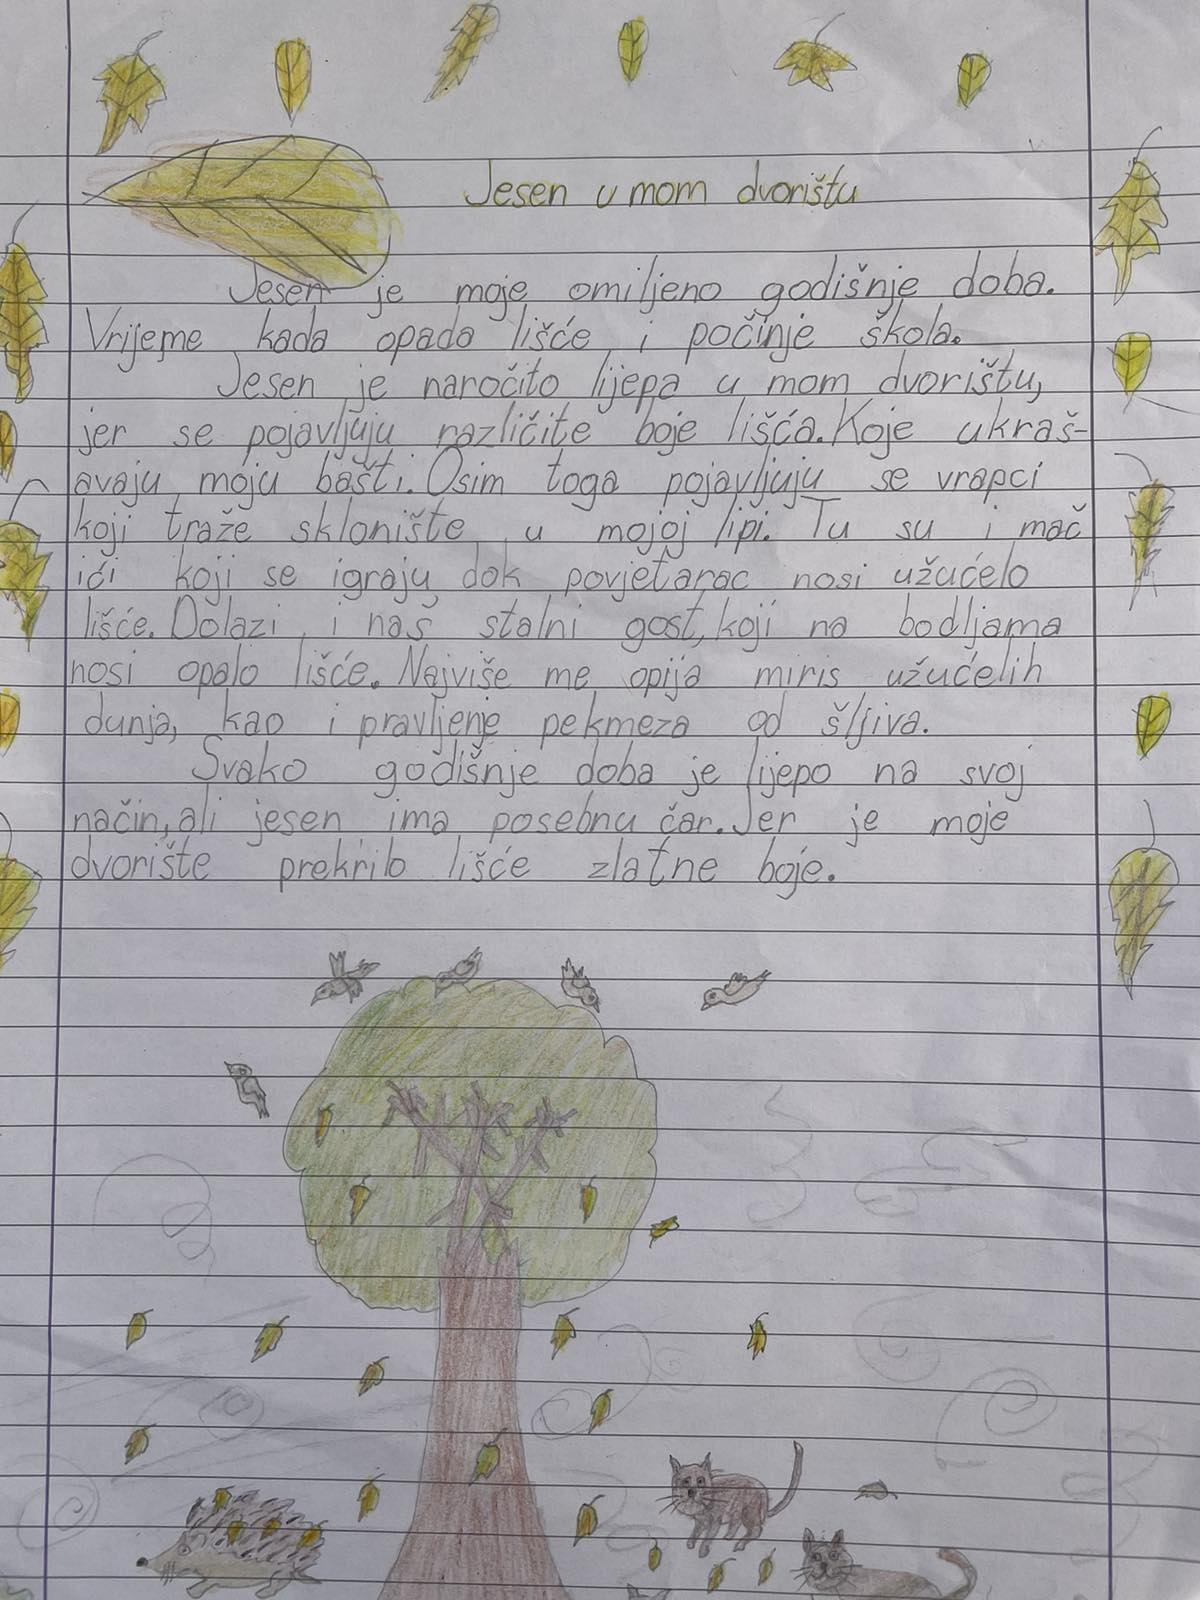 Jesen u mom dvorištu
Jesen je moje omiljeno godišnje doba.
Vrijeme kada opada lišće i počinje škola.
Jesen je naročito lijepa u mom dvorištu,
jer se pojavljuju različite boje lišća. Koje ukraš-
avaju moju bašti. Osim toga pojavljuju se vrapci
koji traže sklonište u mojoj lipi. Tu su i mač
ići koji se igraju dok povjetarac nosi užućelo
lišće. Dolazi i naš stalni gost, koji na bodljama
nosi opalo lišće. Najviše me opija miris užućelih
dunja, kao i pravljenje pekmeza od šljiva.
Svako godišnje doba je lijepo na svoj
način, ali jesen ima posebnu čar. Jer je moje
dvorište prekrilo lišće zlatne boje.